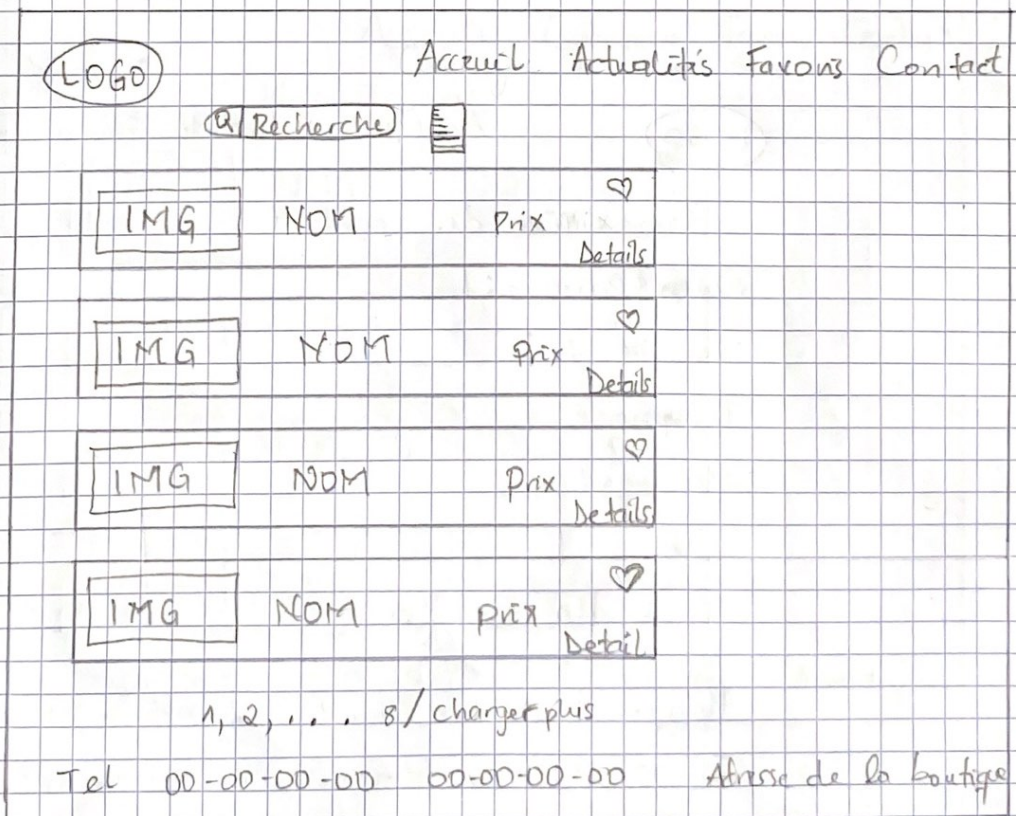 LOGO Acceuil Actualités Favoris Contact
Recherche
IMG NOM Prix
Details
IMG NOM Prix
Details
IMG NOM Prix
Details
IMG NOM Prix
Detail
1, 2, . . . 8 / charger plus
Tel 00-00-00-00 00-00-00-00 Adresse de la boutique